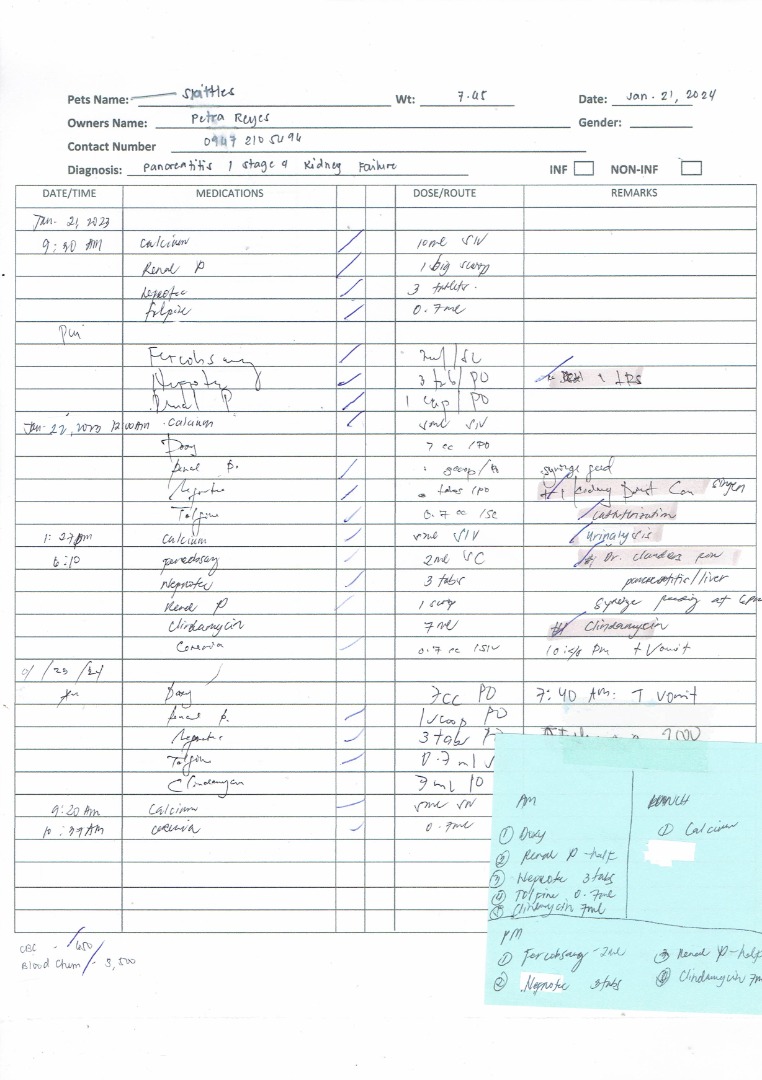 Pets Name: Skittles Wt: 7.45 Date: Jan. 21, 2024
Owners Name: Petra Reyes Gender:
Contact Number 0947 210 5494
Diagnosis: Pancreatitis / stage 4 Kidney Failure INF NON-INF
DATE/TIME MEDICATIONS DOSE/ROUTE REMARKS
Jan. 21, 2023
9:30 AM Calcium 10ml SIV
Renal P 1 big scoop
Neprotec 3 tablets.
Tolpine 0.7ml
PM
Fercobsang 2ml/SC
3 tab/PO LRS
Renal P 1 cap/PO
Jan. 22, 2023 12:00AM Calcium 5ml SIV
Doxy 7 cc /PO
Renal P. scoop/ syringe feed
tabs /PO #1 Kidney Diet Can
Tolpine 0.7 cc /SC Catheterization
1:37pm Calcium 5ml SIV Urinalysis
6:10 2ml SC Dr. Clanders
Neprotec 3 tabs pancreatitis/liver
Renal P 1 scoop syringe feeding at 6PM
Clindamycin 7ml #1 Clindamycin
Cerenia 0.7 cc /SIV PM + Vomit
01/23/24
AM Doxy 7cc PO 7:40 AM: T vomit
Renal P. 1 scoop PO
3 tabs
Tolpine 0.7 ml
Clindamycin 7ml PO
9:20 AM Calcium 5ml SIV
10:39AM Cerenia 0.7ml
CBC - 650
Blood Chem - 3,500
AM
① Doxy
② Renal P - half
③ Neprotec 3 tabs
④ Tolpine 0.7ml
⑤ Clindamycin 7ml
LUNCH
① Calcium
PM
① Fercobsang - 2ml
② Neprotec 3 tabs
③ Renal P - half
④ Clindamycin 7ml